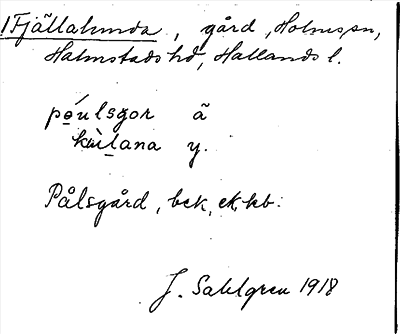 1 Fjällalunda, gård, Holms sn,
Halmstads hd, Hallands l.
pǫ́ulsgor ä
kùlana y.
Pålsgård, bck, ek, kb.
J. Sahlgren 1918